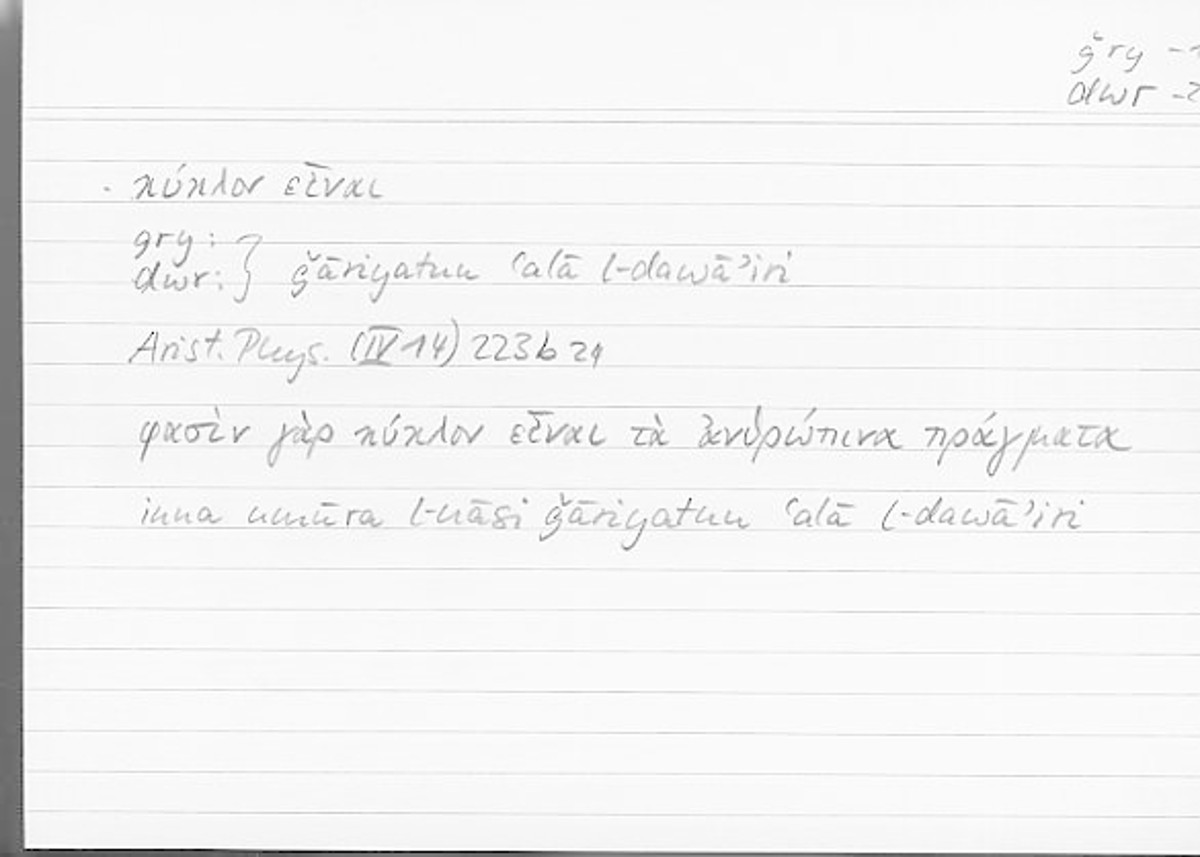 ǧry -1
dwr -2
· κύκλον εἶναι
gry: }
dwr: } ǧāriyatun ʿalā l-dawāʾiri
Arist. Phys. (IV 14) 223b24
φασὶν γὰρ κύκλον εἶναι τὰ ἀνθρώπινα πράγματα
inna umūra l-nāsi ǧāriyatun ʿalā l-dawāʾiri